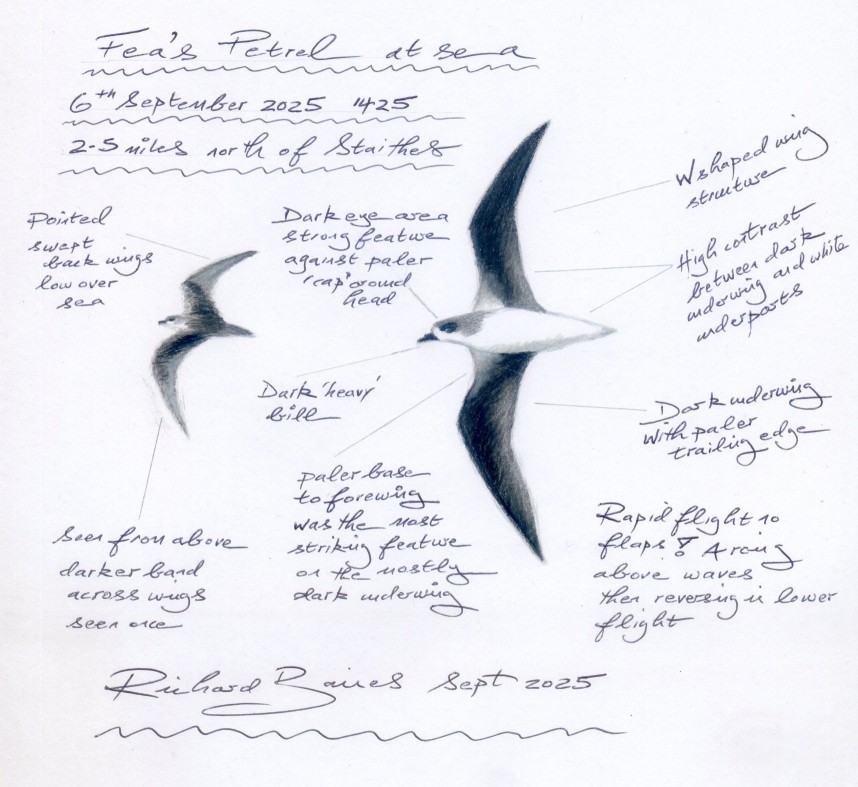 Fea's Petrel at sea
6th September 2025 1425
2-5 miles north of Staithes
Pointed
swept
back wings
low over
sea
Dark eye area
strong feature
against paler
'cap' around
head
W shaped wing
structure
High contrast
between dark
underwing and white
underparts
Dark 'heavy'
bill
Dark underwing
with paler
trailing edge
paler base
to forewing
was the most
striking feature
on the mostly
dark underwing
Seen from above
darker band
across wings
seen once
Rapid flight no
flaps! Arcing
above waves
then reversing in lower
flight
Richard Baines Sept 2025